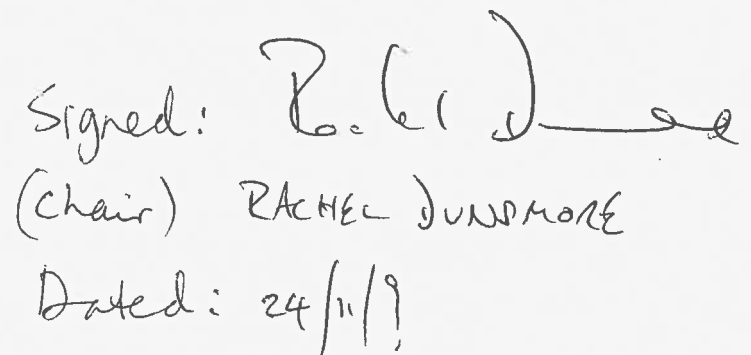 Signed:
(Chair) RACHEL DUNSMORE
Dated: 24/11/9